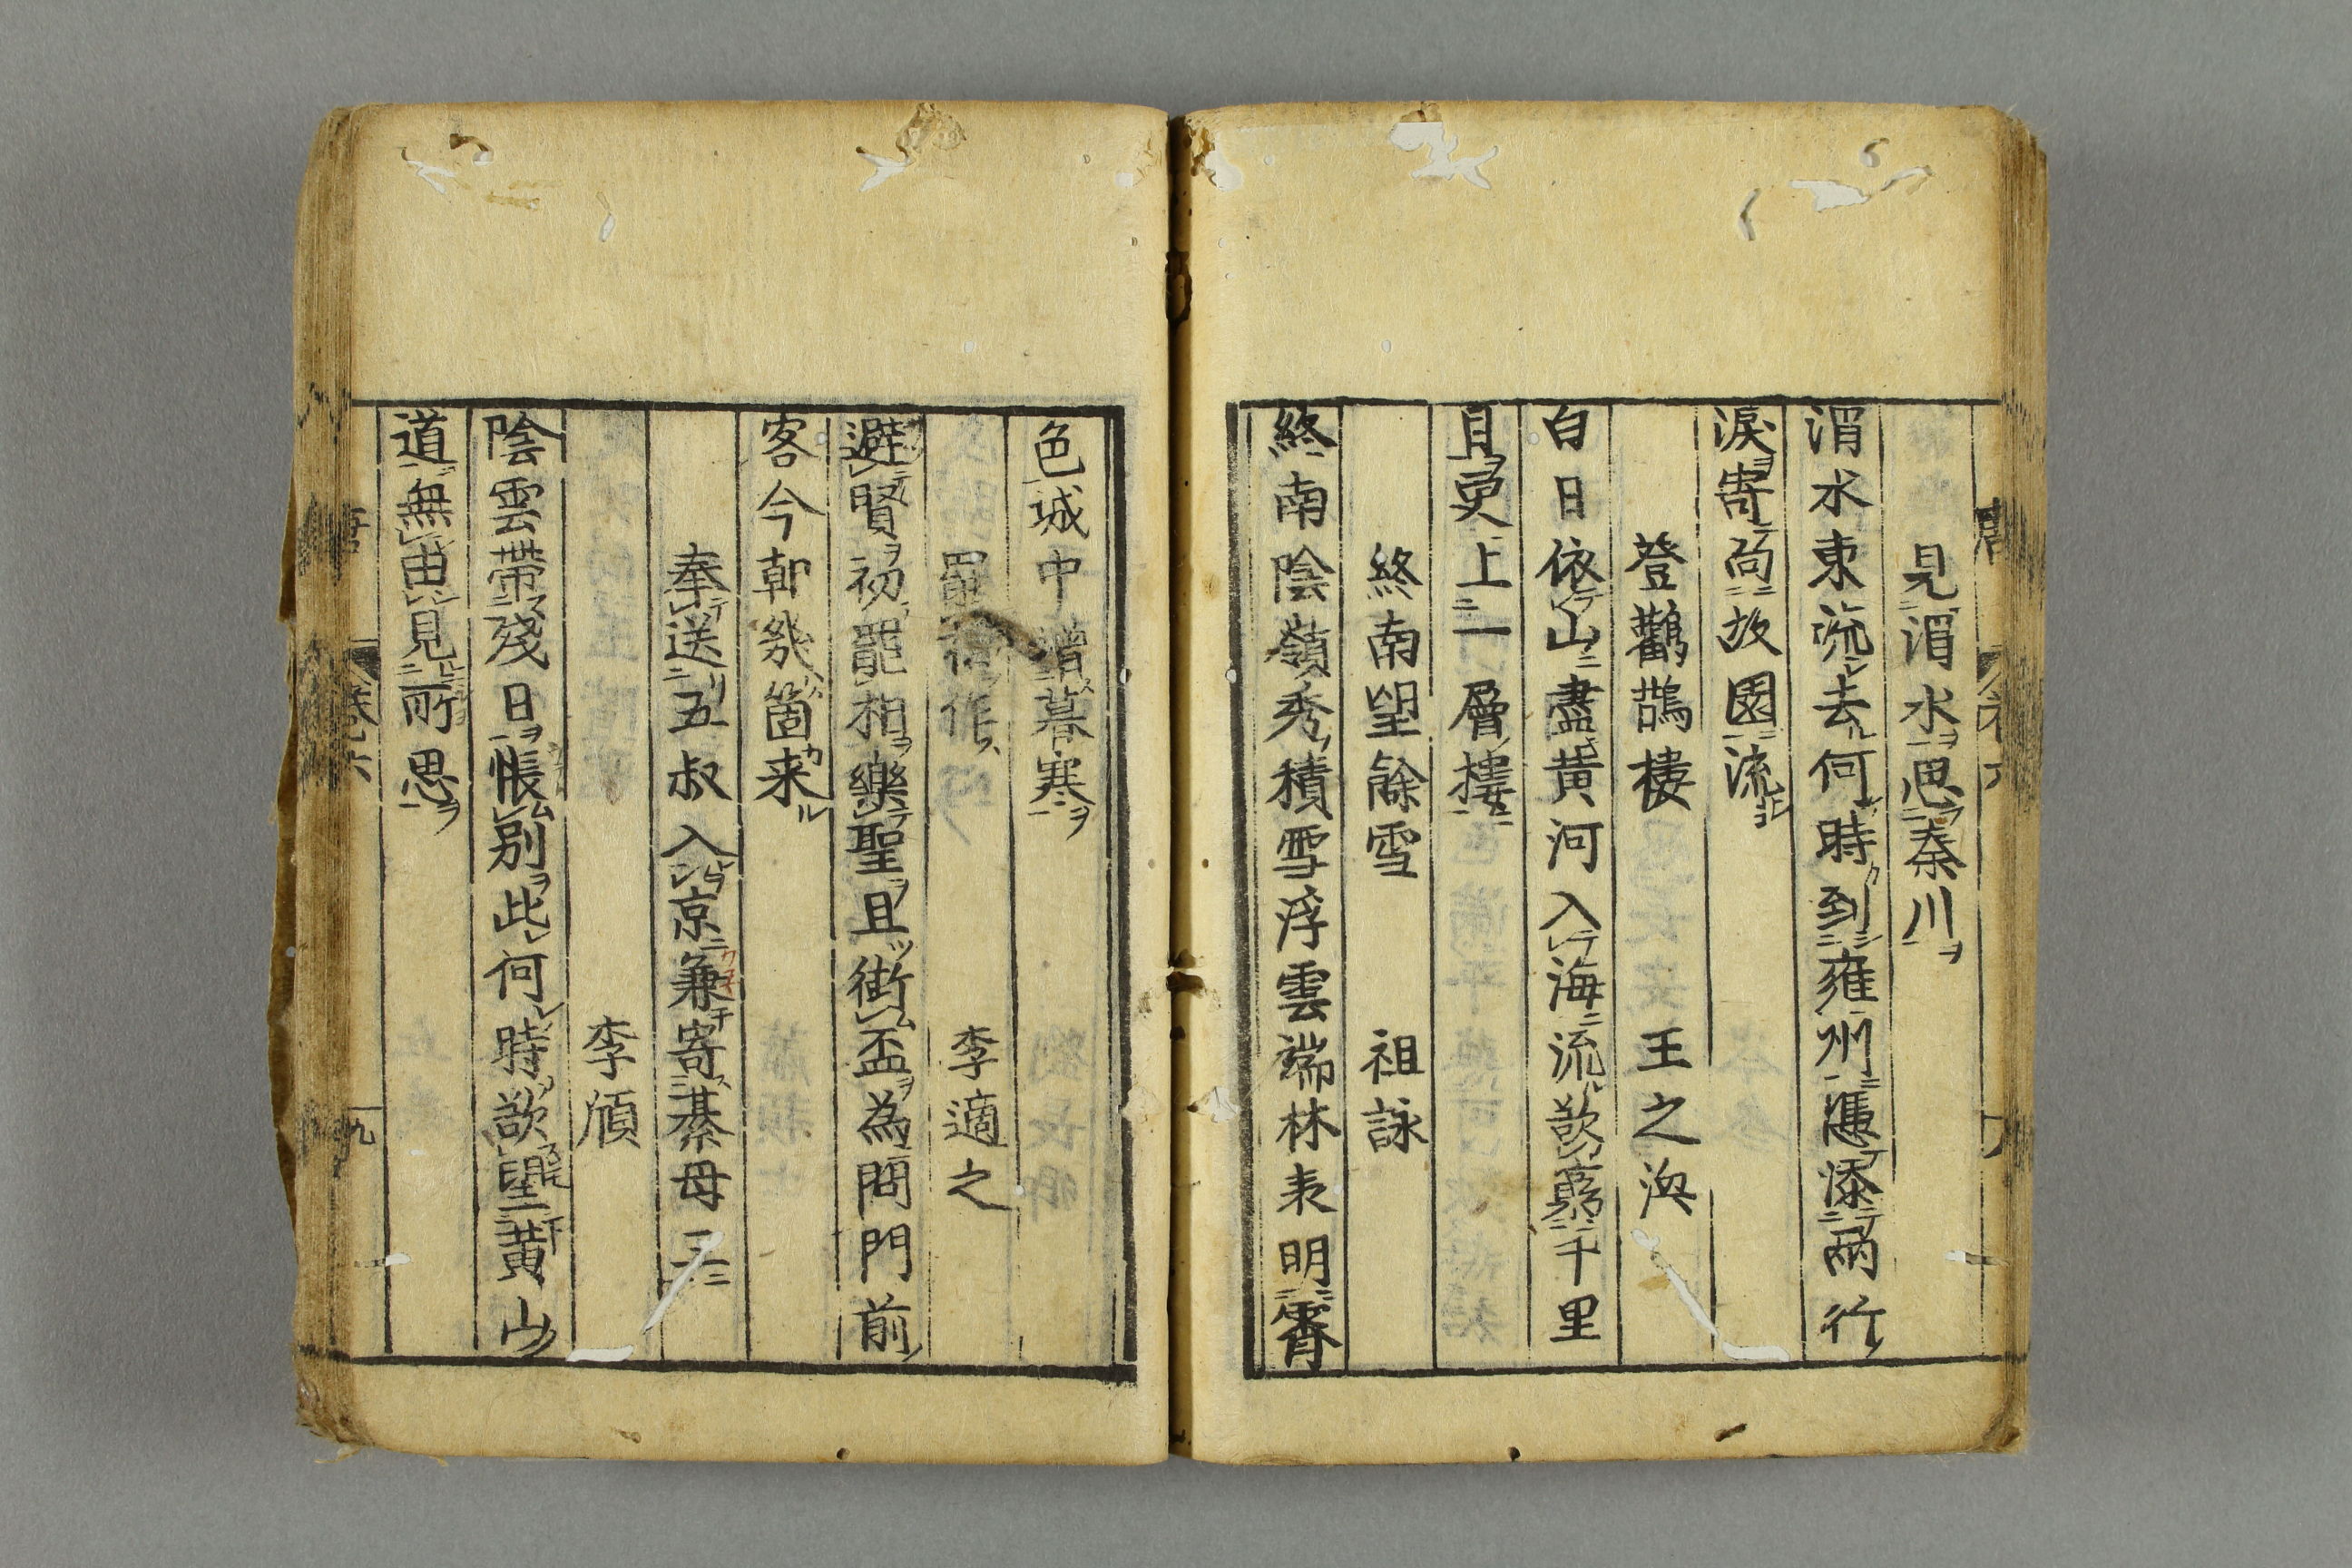 見渭水思秦川
渭水東流去何時到雍州憑添兩行
淚寄向故園流
登鸛鵲樓 王之渙
白日依山盡黄河入海流欲窮千里
目更上一層樓
終南望餘雪 祖詠
終南陰嶺秀積雪浮雲端林表明霽
色城中增暮寒
罷相作 李適之
避賢初罷相樂聖且銜盃為問門前
客今朝幾箇来
奉送五叔入京兼寄綦母三
李頎
陰雲帶殘日悵別此何時欲望黄山
道無由見所思